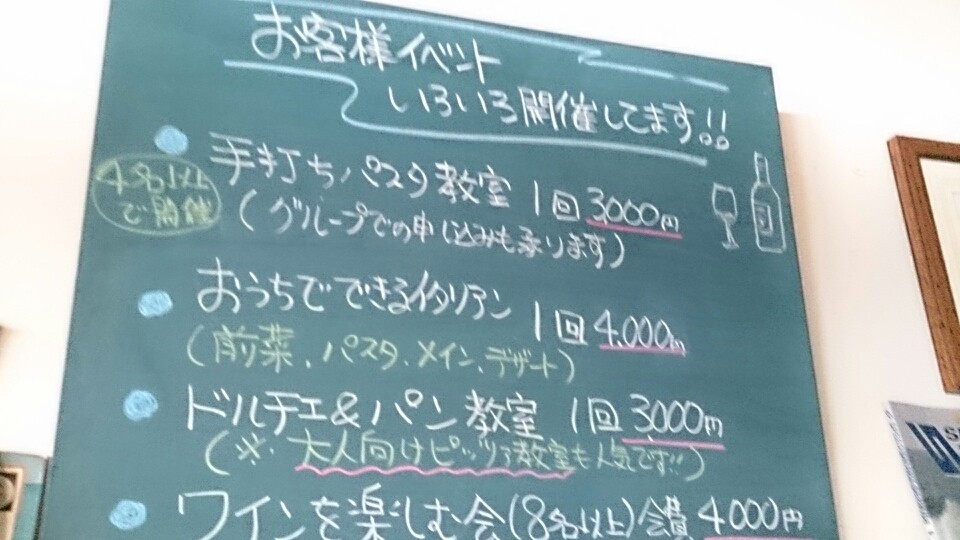 お客様イベント
いろいろ開催してます!!
手打ちパスタ教室 1回 3000円
4名以上
で開催
(グループでの申し込みも承ります)
おうちでできるイタリアン 1回 4.000円
(前菜、パスタ、メイン、デザート)
ドルチェ&パン教室 1回 3000円
(※大人向けピッツァ教室も人気です!!)
ワインを楽しむ会(8名以上)会費 4000円